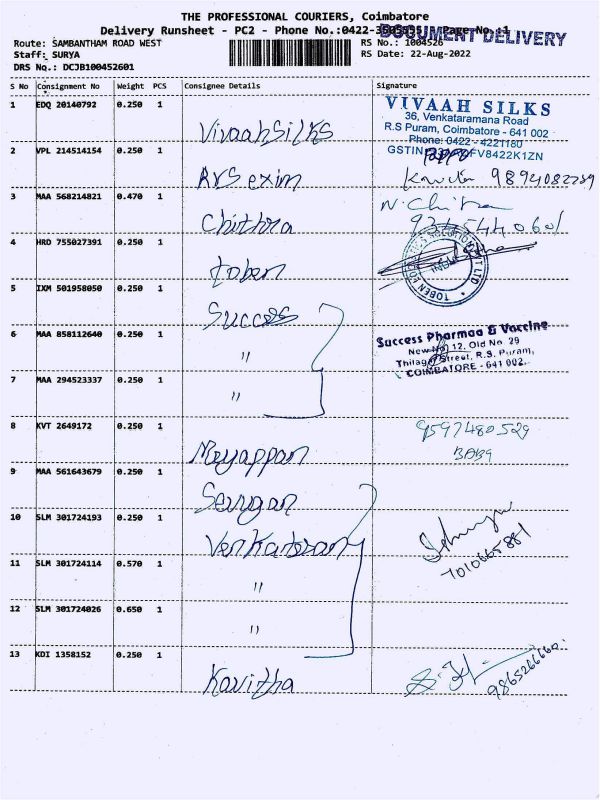 THE PROFESSIONAL COURIERS, Coimbatore
Delivery Runsheet - PC2 - Phone No.:0422- Page No.:1
DOCUMENT DELIVERY
Route: SAMBANTHAM ROAD WEST RS No.: 1004526
Staff: SURYA RS Date: 22-Aug-2022
DRS No.: DCJB100452601
S No Consignment No Weight PCS Consignee Details Signature
1 EDQ 20140792 0.250 1 VivaahSilks
VIVAAH SILKS
36, Venkataramana Road
R.S Puram, Coimbatore - 641 002
Phone: 0422 - 4221180
GSTIN
2 VPL 214514154 0.250 1 RVS exim
3 MAA 568214821 0.470 1 Chithra N. Chitra
4 HRD 755027391 0.250 1 toben
5 IXM 501958050 0.250 1 Success
6 MAA 858112640 0.250 1 "
Success Pharmaa & Vaccine
New No 12, Old No. 29
Street, R.S. Puram,
COIMBATORE - 641 002.
7 MAA 294523337 0.250 1 "
8 KVT 2649172 0.250 1 Meyappan 9597480529
9 MAA 561643679 0.250 1
10 SLM 301724193 0.250 1
7010665881
11 SLM 301724114 0.570 1 "
12 SLM 301724026 0.650 1 "
13 KDI 1358152 0.250 1 Kavitha